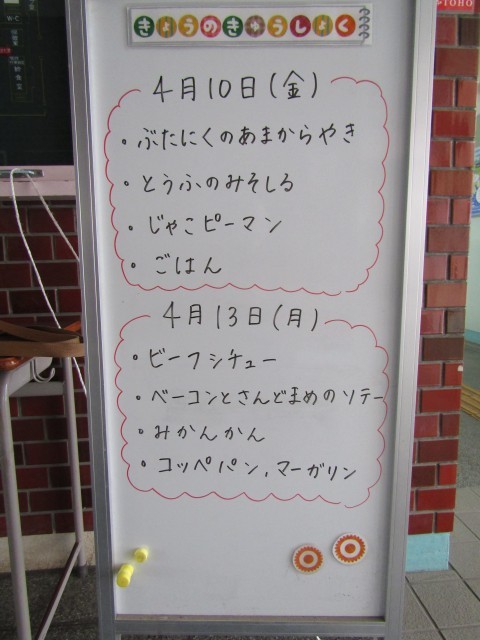 きょうのきゅうしょく
4月10日(金)
・ぶたにくのあまからやき
・とうふのみそしる
・じゃこピーマン
・ごはん
4月13日(月)
・ビーフシチュー
・ベーコンとさんどまめのソテー
・みかんかん
・コッペパン,マーガリン
TOHO
W・C